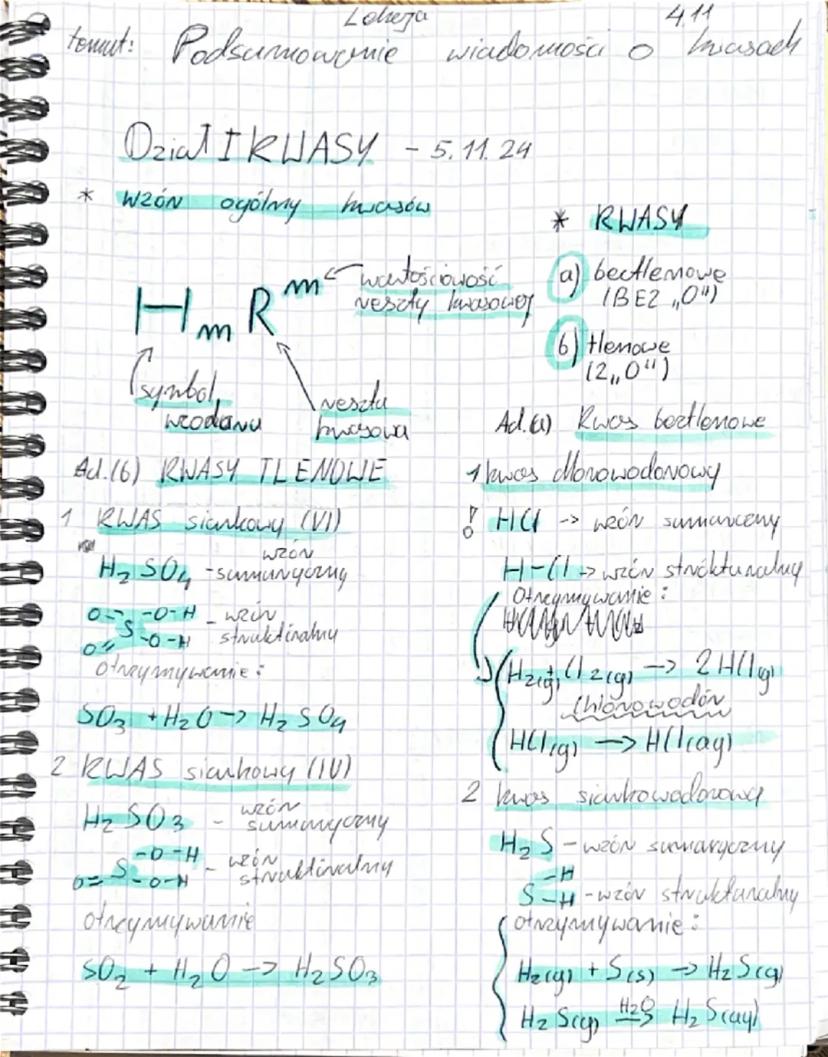 Lekcja 4.11
temat: Podsumowanie wiadomości o kwasach
Dział I KWASY - 5.11.24
* wzór ogólny kwasów
HmR^m
wartościowość
reszty kwasowej
symbol
wodoru
reszta
kwasowa
* KWASY
a) beztlenowe
(BEZ „O")
b) tlenowe
(z „O")
Ad.(b) KWASY TLENOWE
1 KWAS siarkowy (VI)
H2SO4 - wzór
sumaryczny
O= -O-H - wzór
S
O= -O-H strukturalny
otrzymywanie:
SO3 + H2O -> H2SO4
2 KWAS siarkowy (IV)
H2SO3 - wzór
sumaryczny
-O-H - wzór
S
O= -O-H strukturalny
otrzymywanie
SO2 + H2O -> H2SO3
Ad.(a) Kwas beztlenowe
1 kwas chlorowodorowy
! HCl -> wzór sumaryczny
H-Cl -> wzór strukturalny
otrzymywanie:
H2(g) + Cl2(g) -> 2HCl(g)
chlorowodór
HCl(g) -> HCl(aq)
2 kwas siarkowodorowy
H2S - wzór sumaryczny
-H
S -H - wzór strukturalny
otrzymywanie:
H2(g) + S(s) -> H2S(g)
H2S(g) H2O -> H2S(aq)